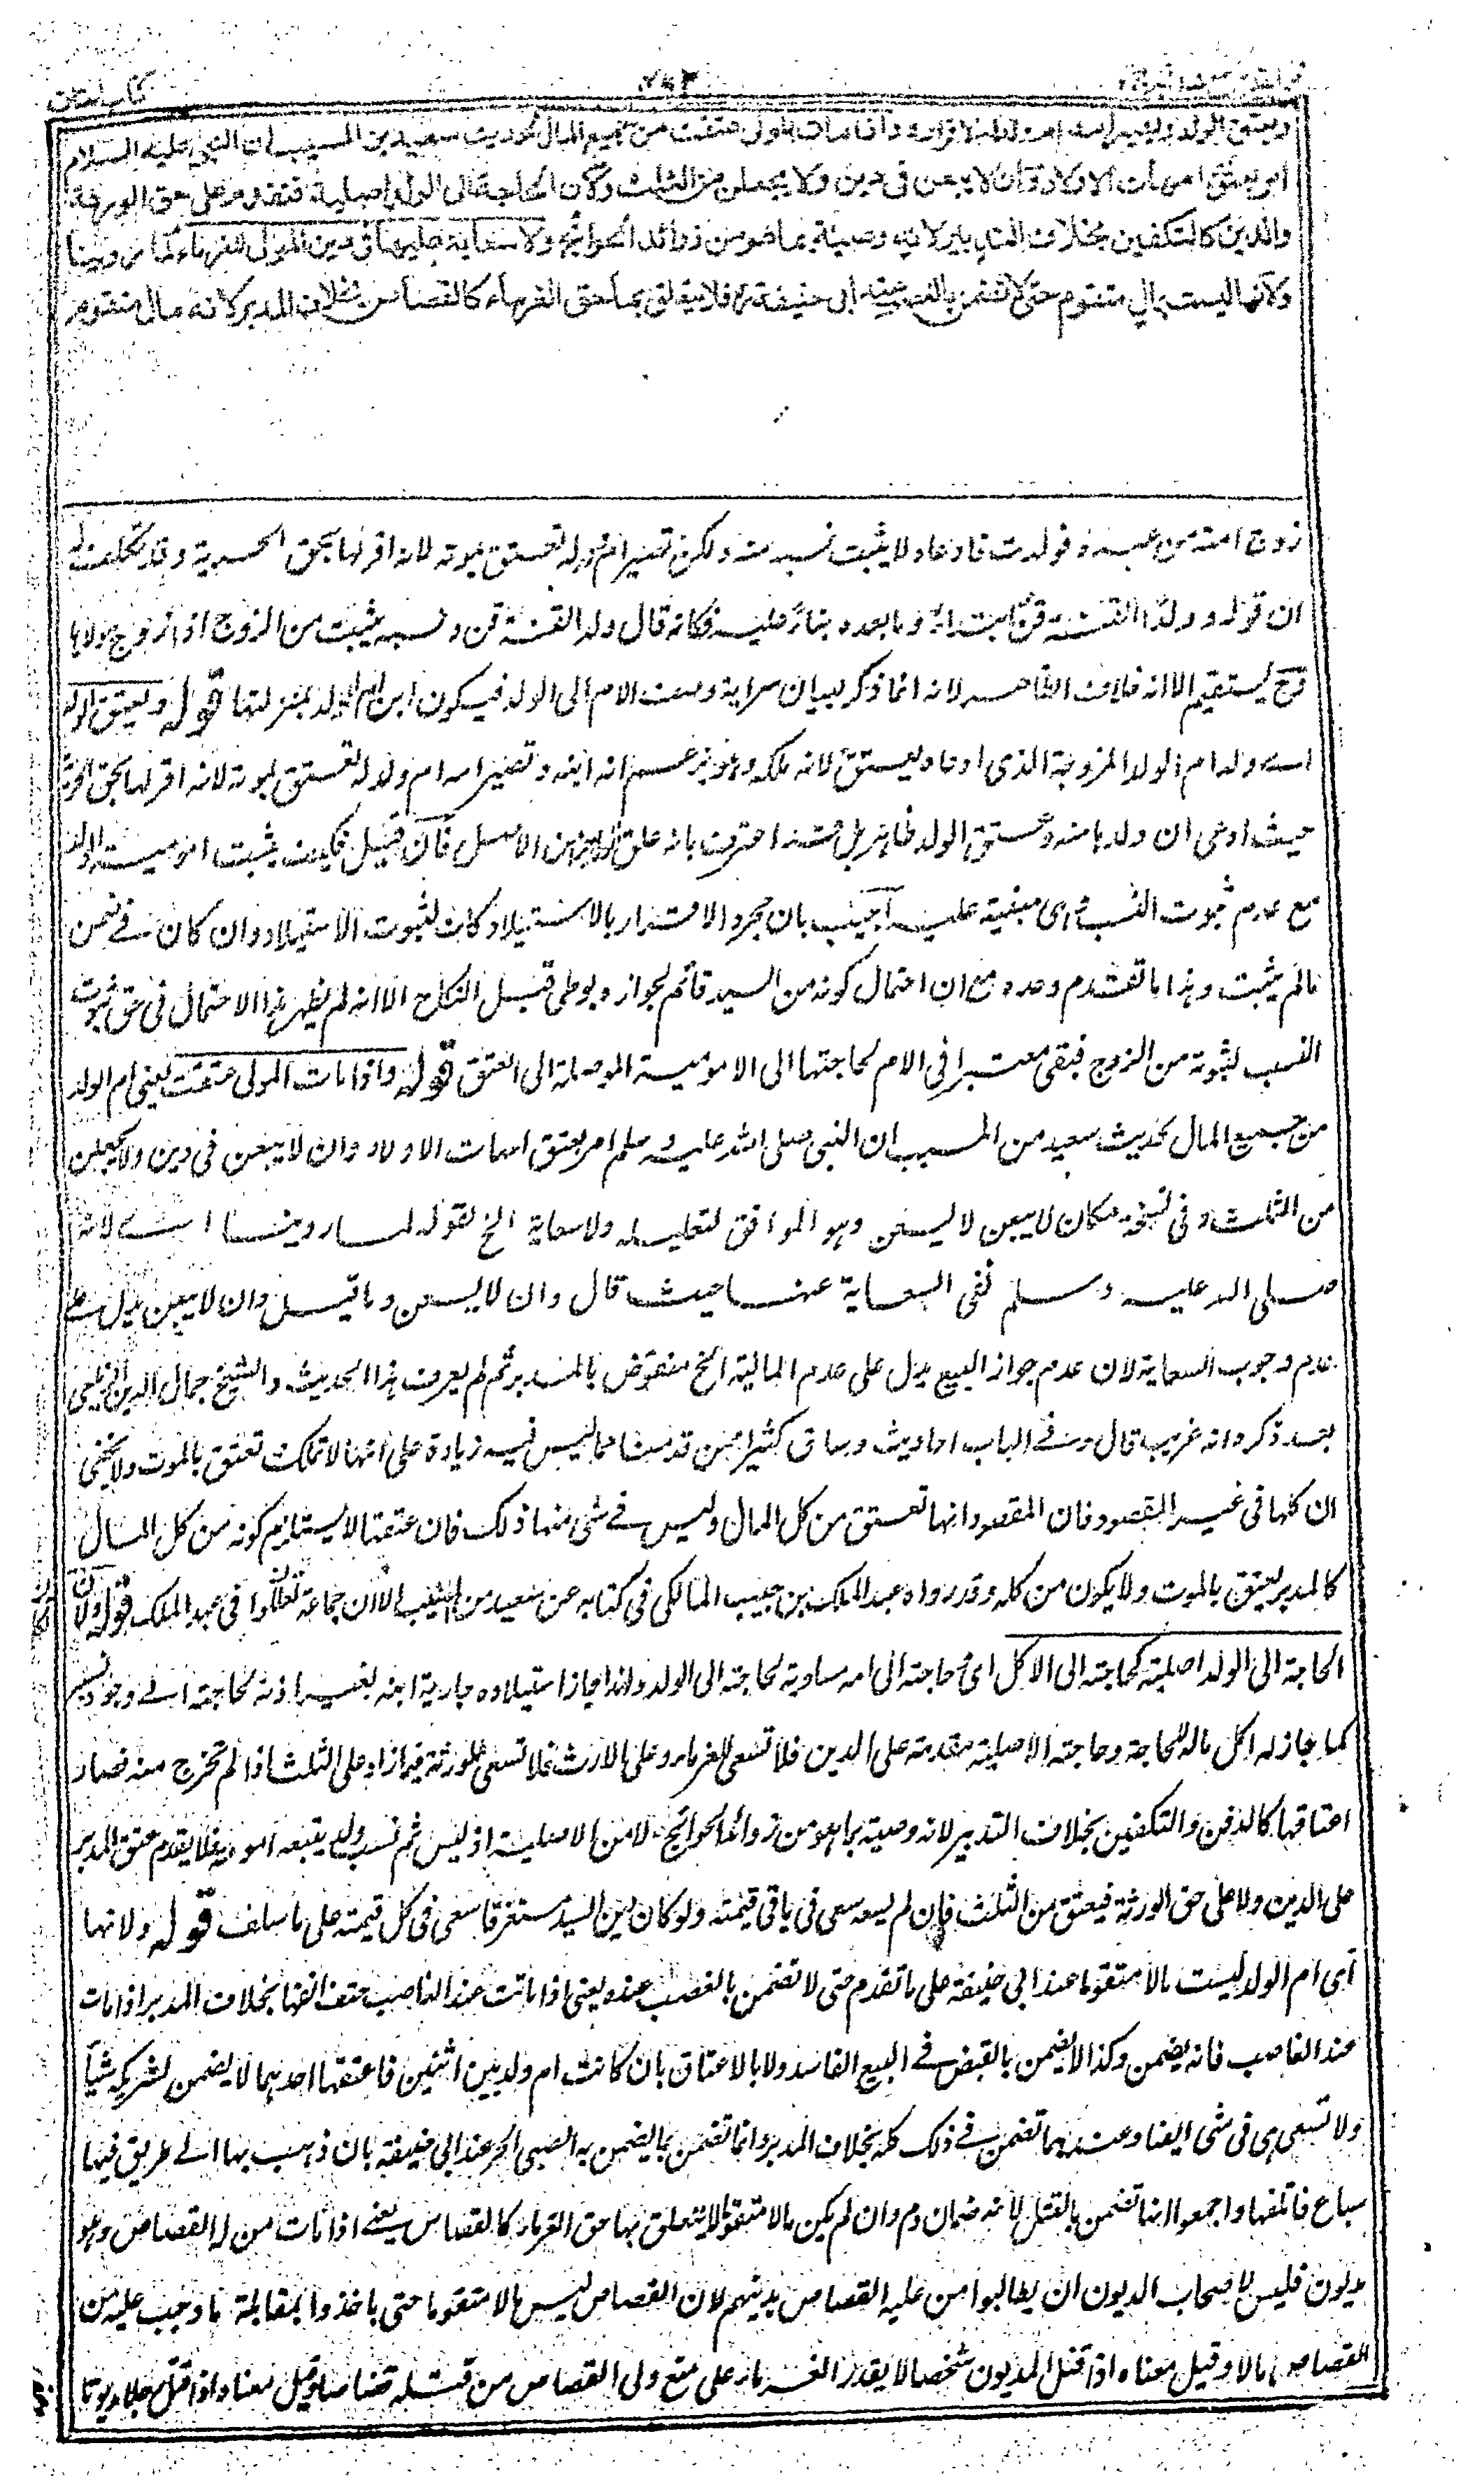 كتاب العتاق
ويعتق الولد وتصير أمه أم ولد له لاقراره وإذا مات المولى عتقت من جميع المال لحديث سعيد بن المسيب أن النبي عليه السلام
أمر بعتق أمهات الأولاد وأن لا يبعن في دين ولا يجعلن من الثلث ولأن الحاجة إلى الولد أصلية فتقدم على حق الورثة
والدين كالتكفين بخلاف التدبير لأنه وصية بما هو من زوائد الحوائج ولا سعاية عليها في دين المولى للغرماء لما روينا
ولأنها ليست بمال متقوم حتى لا تضمن بالغصب عند أبي حنيفة رح فلا يتعلق بها حق الغرماء كالقصاص بخلاف المدبر لأنه مال متقوم
زوج امته من عبده فولدت فادعاه لا يثبت نسبه منه ولكن تصير ام ولد له تعتق بموته لانه اقر لها بحق الحرية وقد تكلف
ان قوله وولد القنة قن ابتداء وما بعده بناء عليه فكانه قال ولد القنة قن ونسبه يثبت من الزوج اذا زوج مولاها
وح يستقيم الا انه خلاف الظاهر لانه انما ذكر لبيان سراية وصف الام الى الولد فيكون ابن ام الولد بمنزلتها قوله ويعتق الولد
اى ولد ام الولد المزوجة الذى ادعاه ليعتق لانه ملكه وهو يزعم انه ابنه وتصير امه ام ولد له تعتق بموته لانه اقر لها بحق الحرية
حيث ادعى ان ولدها منه وعتق الولد ظاهر بل قد اعترف بانه علق حرا من الاصل فان قيل فكيف يثبت امومية الولد
مع عدم ثبوت النسب وهى مبنية عليه اجيب بان مجرد الاقرار بالاستيلاد كاف لثبوت الاستيلاد وان كان فى ضمن
ما لم يثبت وهذا ما تقدم وعده مع ان احتمال كونه من السيد قائم لجواز وطى قبل النكاح الا انه لم يظهر هذا الاحتمال فى حق ثبوت
النسب لثبوته من الزوج فبقى معتبرا فى الام لحاجتها الى الامومية الموصلة الى العتق قوله واذا مات المولى عتقت يعنى ام الولد
من جميع المال لحديث سعيد من المسيب ان النبى صلى الله عليه وسلم امر بعتق امهات الاولاد وان لا يبعن فى دين ولا يجعلن
من الثلث وفى نسخة مكان لا يبعن لا يسعين وهو الموافق لتعليله ولا سعاية الخ لقوله لما روينا اى لانه
صلى الله عليه وسلم نفى السعاية عنها حيث قال وان لا يسعين وما قيل وان لا يبعن يدل على
عدم وجوب السعاية لان عدم جواز البيع يدل على عدم المالية الخ منقوض بالمدبر ثم لم يعرف هذا الحديث والشيخ جمال الدين الزيلعى
بعد ذكره انه غريب قال وفى الباب احاديث وساق كثيرا ممن قدمنا مما ليس فيه زيادة على انها لا تملك تعتق بالموت ولا يخفى
ان كلها فى غير المقصود فان المقصود انها تعتق من كل المال وليس فى شئ منها ذلك فان عتقها لا يستلزم كونه من كل المال
كالمدبر يعتق بالموت ولا يكون من كله وقد رواه عبد الملك بن حبيب المالكى فى كتابه عن سعيد من المسيب الا ان جماعة تكلموا فى عبد الملك قوله ولان
الحاجة الى الولد اصلية كحاجته الى الاكل اى حاجته الى امه مساوية لحاجته الى الولد ولهذا جاز استيلاده جارية ابنه بغير اذنه لحاجته الى وجود نسبه
كما جاز له اكل ماله للحاجة وحاجته الاصلية مقدمة على الدين فلا تسعى للغرماء وعلى الارث فلا تسعى للورثة فيما زاد على الثلث اذا لم تخرج منه فصار
اعتاقها كالدفن والتكفين بخلاف التدبير لانه وصية بما هو من زوائد الحوائج لا من الاصلية اذ ليس ثم نسب ولد يتبعه امومية فلا يقدم عتق المدبر
على الدين ولا على حق الورثة فيعتق من الثلث فان لم يسعه سعى فى باقى قيمته ولو كان دين السيد مستغرقا سعى فى كل قيمته على ما سلف قوله ولانها
اى ام الولد ليست مالا متقوما عند ابى حنيفة على ما تقدم حتى لا تضمن بالغصب عنده يعنى اذا ماتت عند الغاصب حتف انفها بخلاف المدبر اذا مات
عند الغاصب فانه يضمن وكذا لا يضمن بالقبض فى البيع الفاسد ولا بالاعتاق بان كانت ام ولد بين اثنين فاعتقها احدهما لا يضمن لشريكه شيأ
ولا تسعى هى فى شئ ايضا وعندهما تضمن فى ذلك كله بخلاف المدبر وانما تضمن بما يضمن به الصبى الحر عند ابى حنيفة بان ذهب بها الى طريق فيها
سباع فاتلفها واجمعوا انها تضمن بالقتل لانه ضمان دم وان لم يكن مالا متقوما لا يتعلق بها حق الغرماء كالقصاص يعنى اذا مات من له القصاص وهو
مديون فليس لاصحاب الديون ان يطالبوا من عليه القصاص بدينهم لان القصاص ليس مالا متقوما حتى ياخذوا بمقابلة ما وجب عليه من
القصاص مالا وقيل معناه اذا قتل المديون شخصا لا يقدر الغرماء على منع ولى القصاص من قتله قصاصا وقيل معناه اذا قتل رجلا مديونا